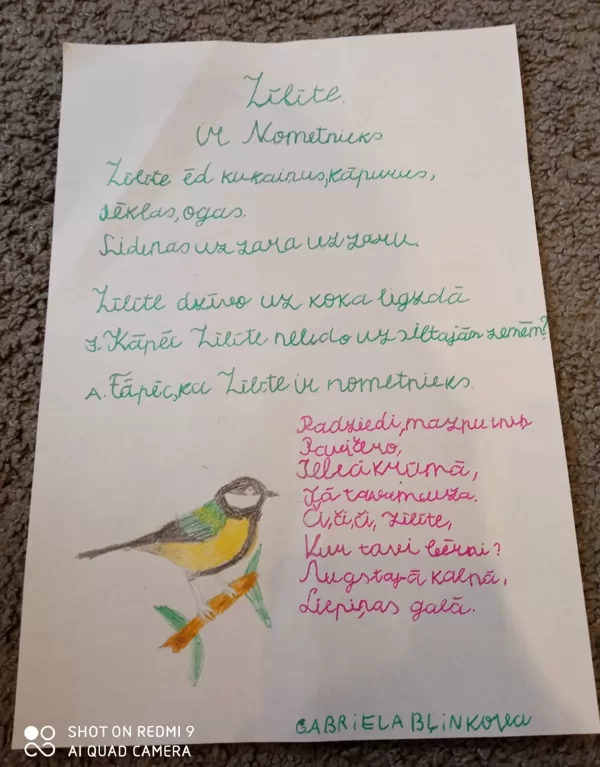 Zīlīte.
ir Nometnieks
Zīlīte ēd kukaiņus, kāpurus,
sēklas, ogas.
Lidinas uz zara uz zaru.
Zīlīte dzīvo uz koka ligzdā
J. Kāpēc Zīlīte nelido uz siltajām zemēm?
A. Tāpēc, ka Zīlīte ir nometnieks.
Padziedi, mazputniņ
Pavižero,
krūmā,
Čī, či, či, zīlīte,
Kur tavi bērni?
Augstajā kalnā,
Liepiņas galā.
GABRiELA BĻiNKOVA
SHOT ON REDMI 9
AI QUAD CAMERA